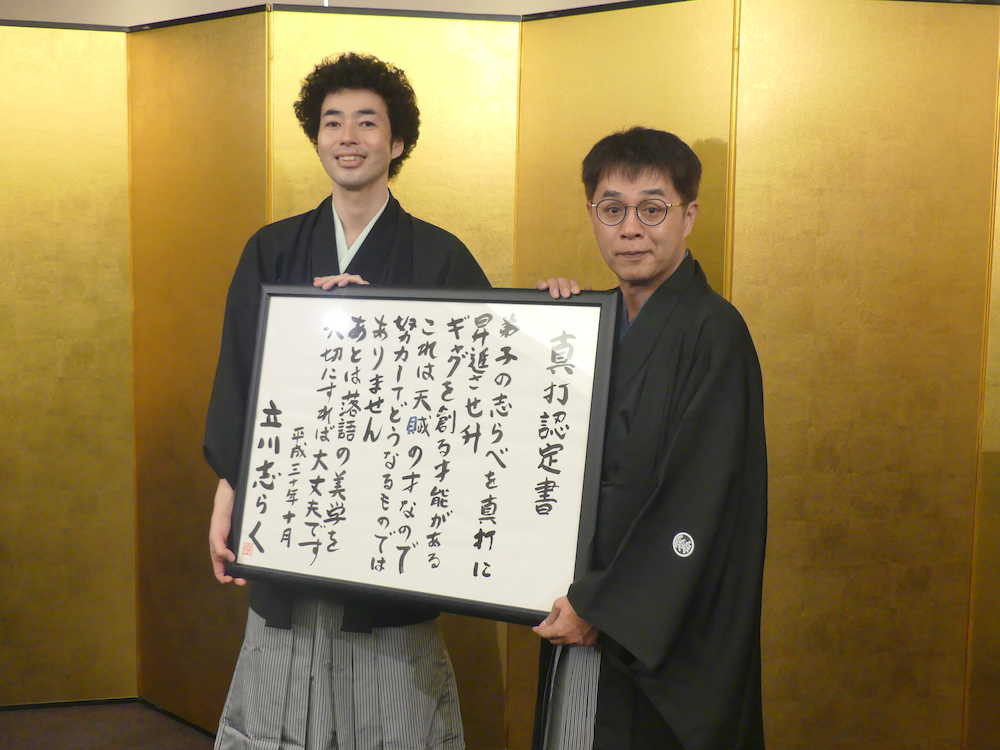 真打認定書
弟子の志らべを真打に
昇進させ升
ギャグを創る才能がある
これは天賊の才なので
努力してどうなるものでは
ありません
あとは落語の美学を
大切にすれば大丈夫です
平成三十年十月
立川志らく